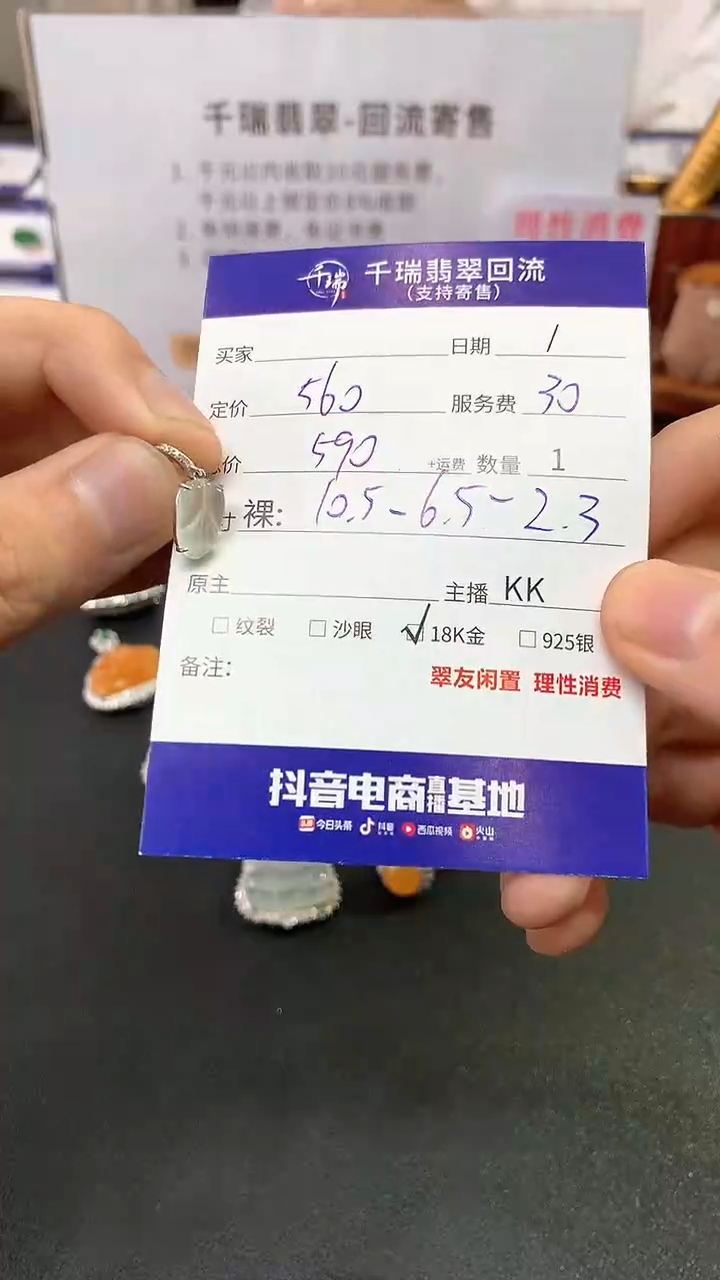 千瑞翡翠-回流寄售
理性消费
千瑞
千瑞翡翠回流
(支持寄售)
买家 日期 /
定价 560 服务费 30
价 590 +运费 数量 1
寸 裸: 10.5-6.5-2.3
原主 主播 KK
□ 纹裂 □ 沙眼 ☑ 18K金 □ 925银
备注:
翠友闲置 理性消费
抖音电商直播基地
今日头条 抖音 西瓜视频 火山